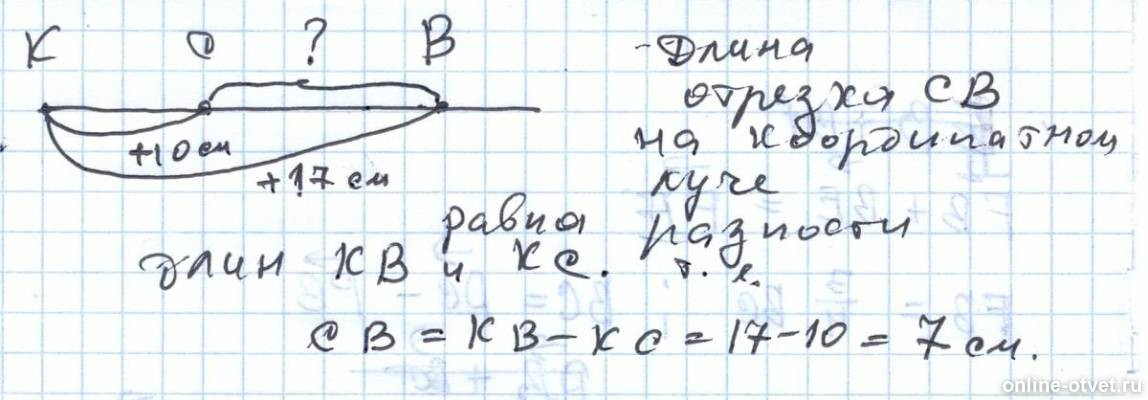 К С ? В
+10 см
+17 см
- Длина
отрезка СВ
на координатном
луче
равна разности
длин КВ и КС. т. е.
СВ = КВ - КС = 17 - 10 = 7 см.
online-otvet.ru